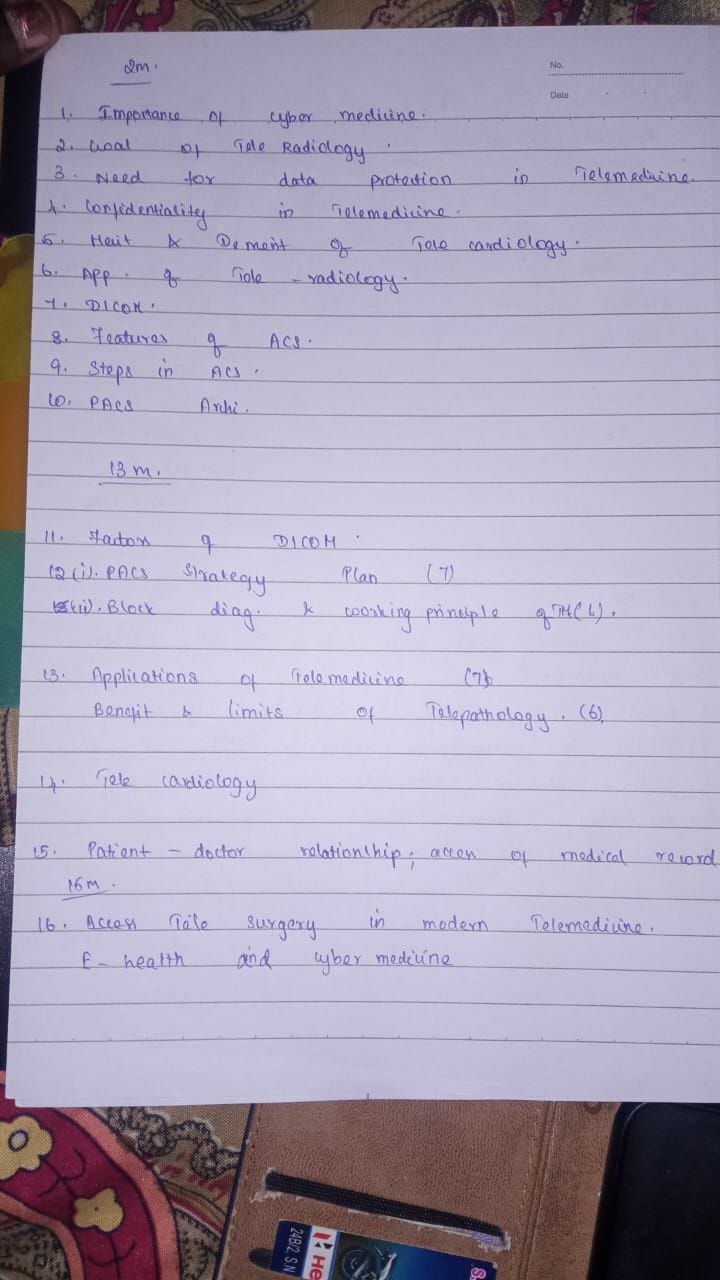 2m.
No.
Date
1. Importance of cyber medicine.
2. Goal of Tele Radiology
3. Need for data protection in Telemedicine.
4. Confidentiality in Telemedicine.
5. Merit & Demerit of Tele cardiology.
6. App. of Tele - radiology.
7. DICOM.
8. Features of ACS.
9. Steps in ACS.
10. PACS Archi.
13 m.
11. Factors of DICOM
12 (i). PACS Strategy Plan (7)
(ii). Block diag. & working principle of TM (6).
13. Applications of Telemedicine (7)
Benefit & limits of Telepathology. (6)
14. Tele cardiology
15. Patient - doctor relationship; access of medical record
15m.
16. Access Tele surgery in modern Telemedicine.
E- health and cyber medicine
24B/2, S.N
HE